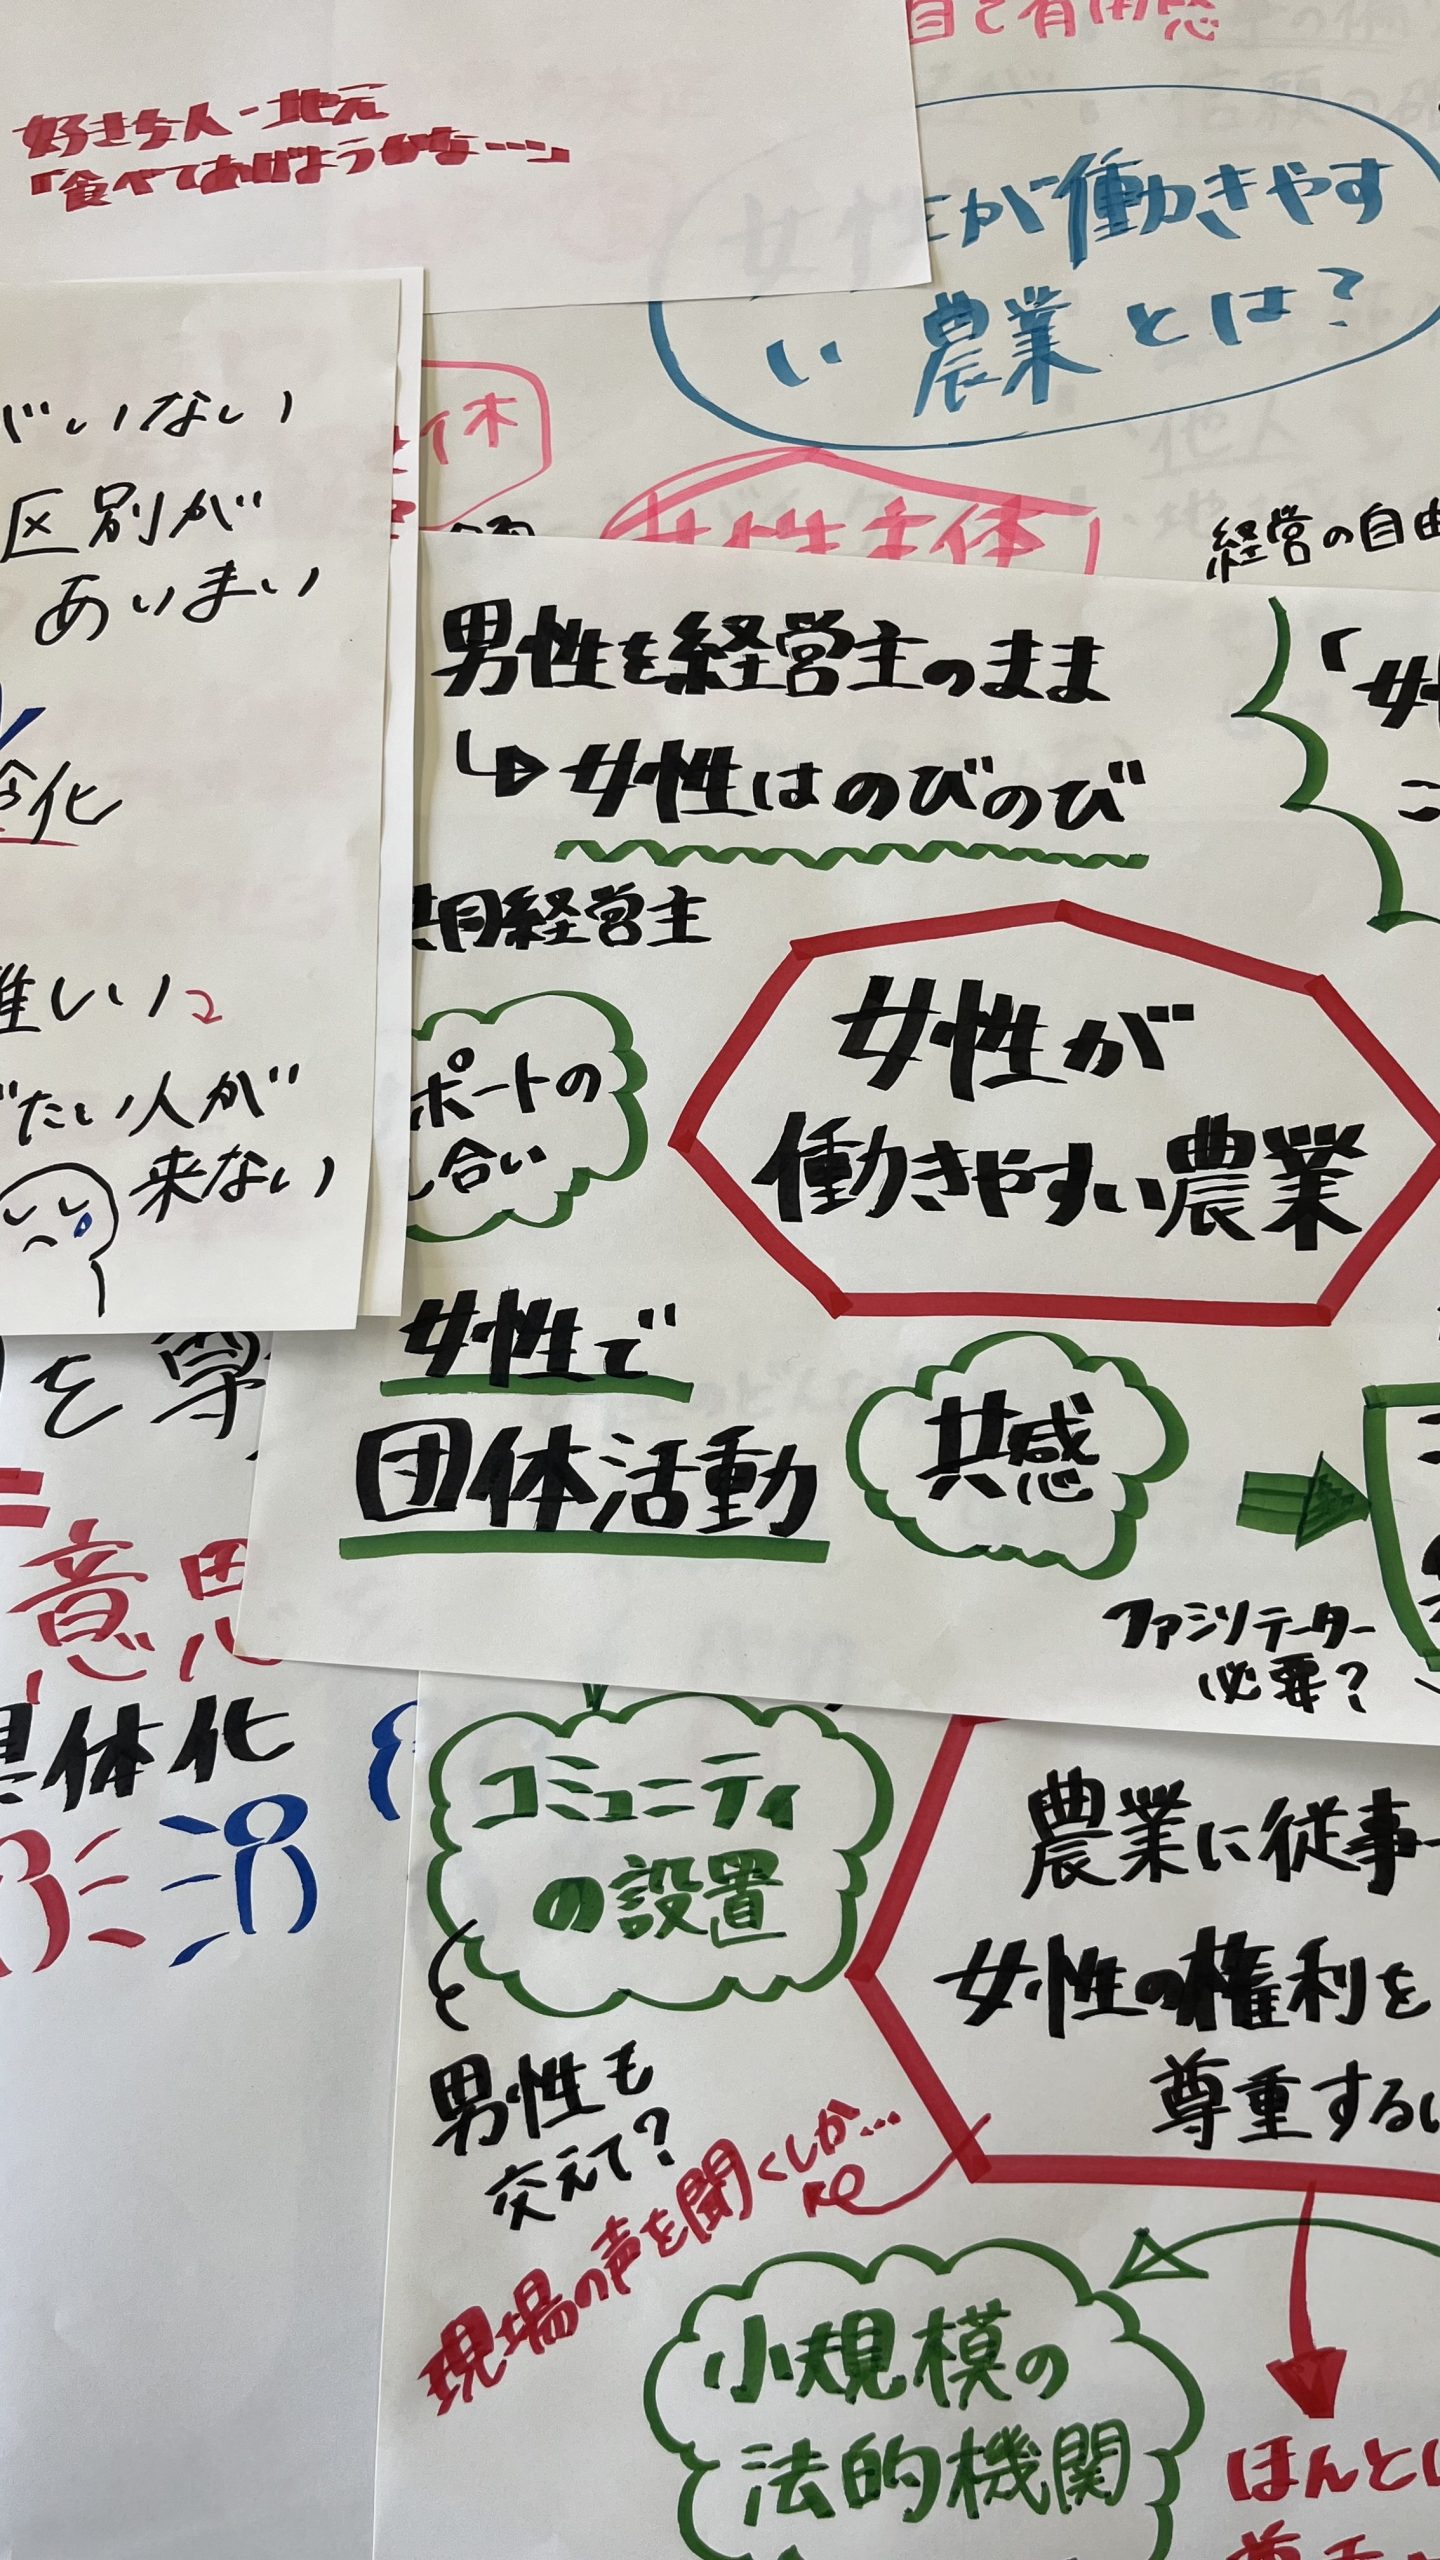 好きな人・地元
「食べてあげようかな…」
が働きやす
い農業とは?
がいない
区別が
あいまい
化
しい
たい人が
来ない
女性主体
経営の自由
男性を経営主のまま
↳女性はのびのび
共同経営主
女性が
働きやすい農業
ポートの
し合い
女性で
団体活動
共感
ファシリテーター
必要?
を尊
意思
具体化
コミュニティ
の設置
男性も
交えて?
現場の声を聞くしか…
農業に従事
女性の権利を
尊重する
小規模の
法的機関
ほんと